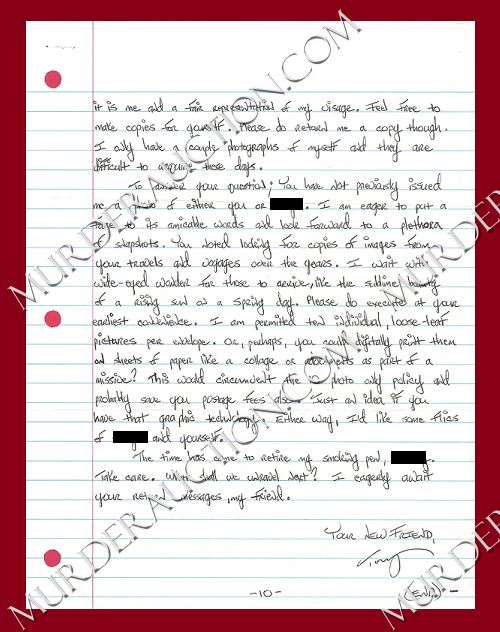 it is me and a fair representation of my visage. Feel free to
make copies for yourself. Please do return me a copy though.
I only have a couple photographs of myself and they are
difficult to acquire these days.
To answer your question; You have not previously issued
me a photo of either you or . I am eager to put a
face to its amicable words and look forward to a plethora
of snapshots. You noted looking for copies of images from
your travels and voyages over the years. I wait with
wide-eyed wonder for those to arrive, like the sublime beauty
of a rising sun on a spring day. Please do execute at your
earliest convenience. I am permitted ten individual, loose-leaf
pictures per envelope. Or, perhaps, you could digitally print them
on sheets of paper like a collage or documents as part of a
missive? This would circumvent the photo only policy and
probably save you postage fees also. Just an idea if you
have that graphic technology. Either way, I'd like some flics
of and yourself.
The time has come to retire my smoking pen, .
Take care. What shall we unravel next? I eagerly await
your return messages, my friend.
Your New Friend,
Tony
-10-
(End)
MURDERAUCTION.COM